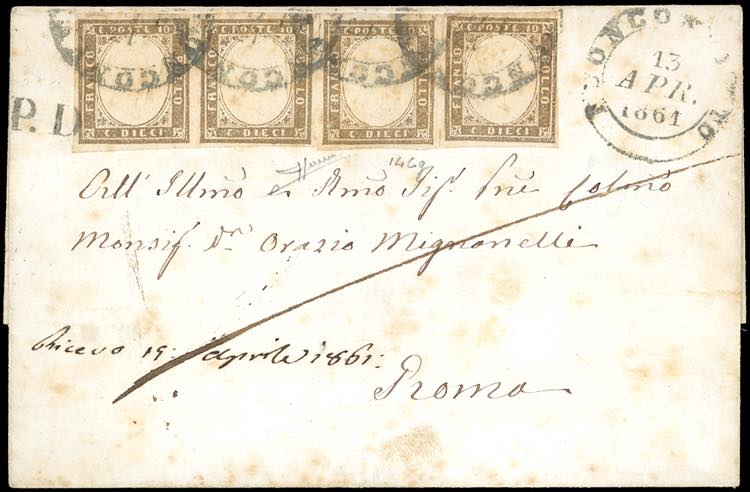 C. POSTE 10 C. POSTE 10 C. POSTE 10 C. POSTE 10
FRANCO BOLLO FRANCO BOLLO FRANCO BOLLO FRANCO BOLLO
C. DIECI C. DIECI C. DIECI C. DIECI
13
APR.
1861
P.D
14Cg
All' Illmo e Rmo Sig.
Monsig. Dn Orazio Mignanelli
Ricevo 19: Aprile 1861:
Roma